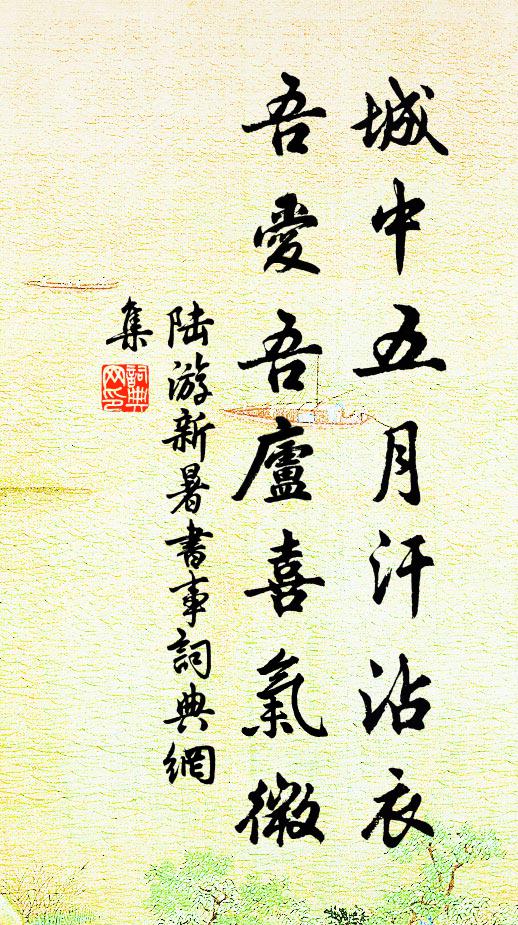 城中五月汗沾衣
吾愛吾廬喜氣微
陸游新暑書事詞典網
集
詞典
网印